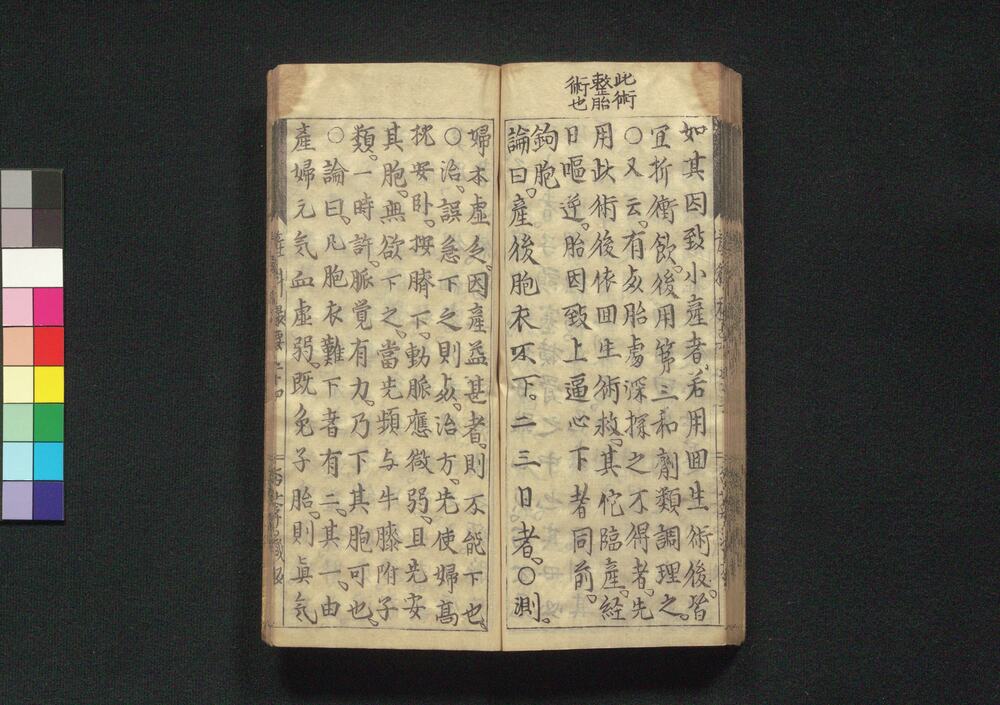 此術
整胎
術也
如其因致小產者。若用回生術後。皆
宜折衝飲。後用第三和劑類調理之。
○又云。有死胎處深探之不得者。先
用此術後依回生術救。其佗臨產。経
日嘔逆。胎因致上逼心下者同前。
鉤胞
論曰。產後胞衣不下。二三日者。○測。
婦本虛乏。因產益甚者。則不能下也。
○治。誤急下之則死。治方。先使婦髙
枕安卧。按臍下。動脈應微弱。且先安
其胞。無欲下之。當先頻与牛膝附子
類。一時許。脈覚有力。乃下其胞可也。
○論曰。凡胞衣難下者有二。其一。由
產婦元気血虛弱。既免子胎。則眞気